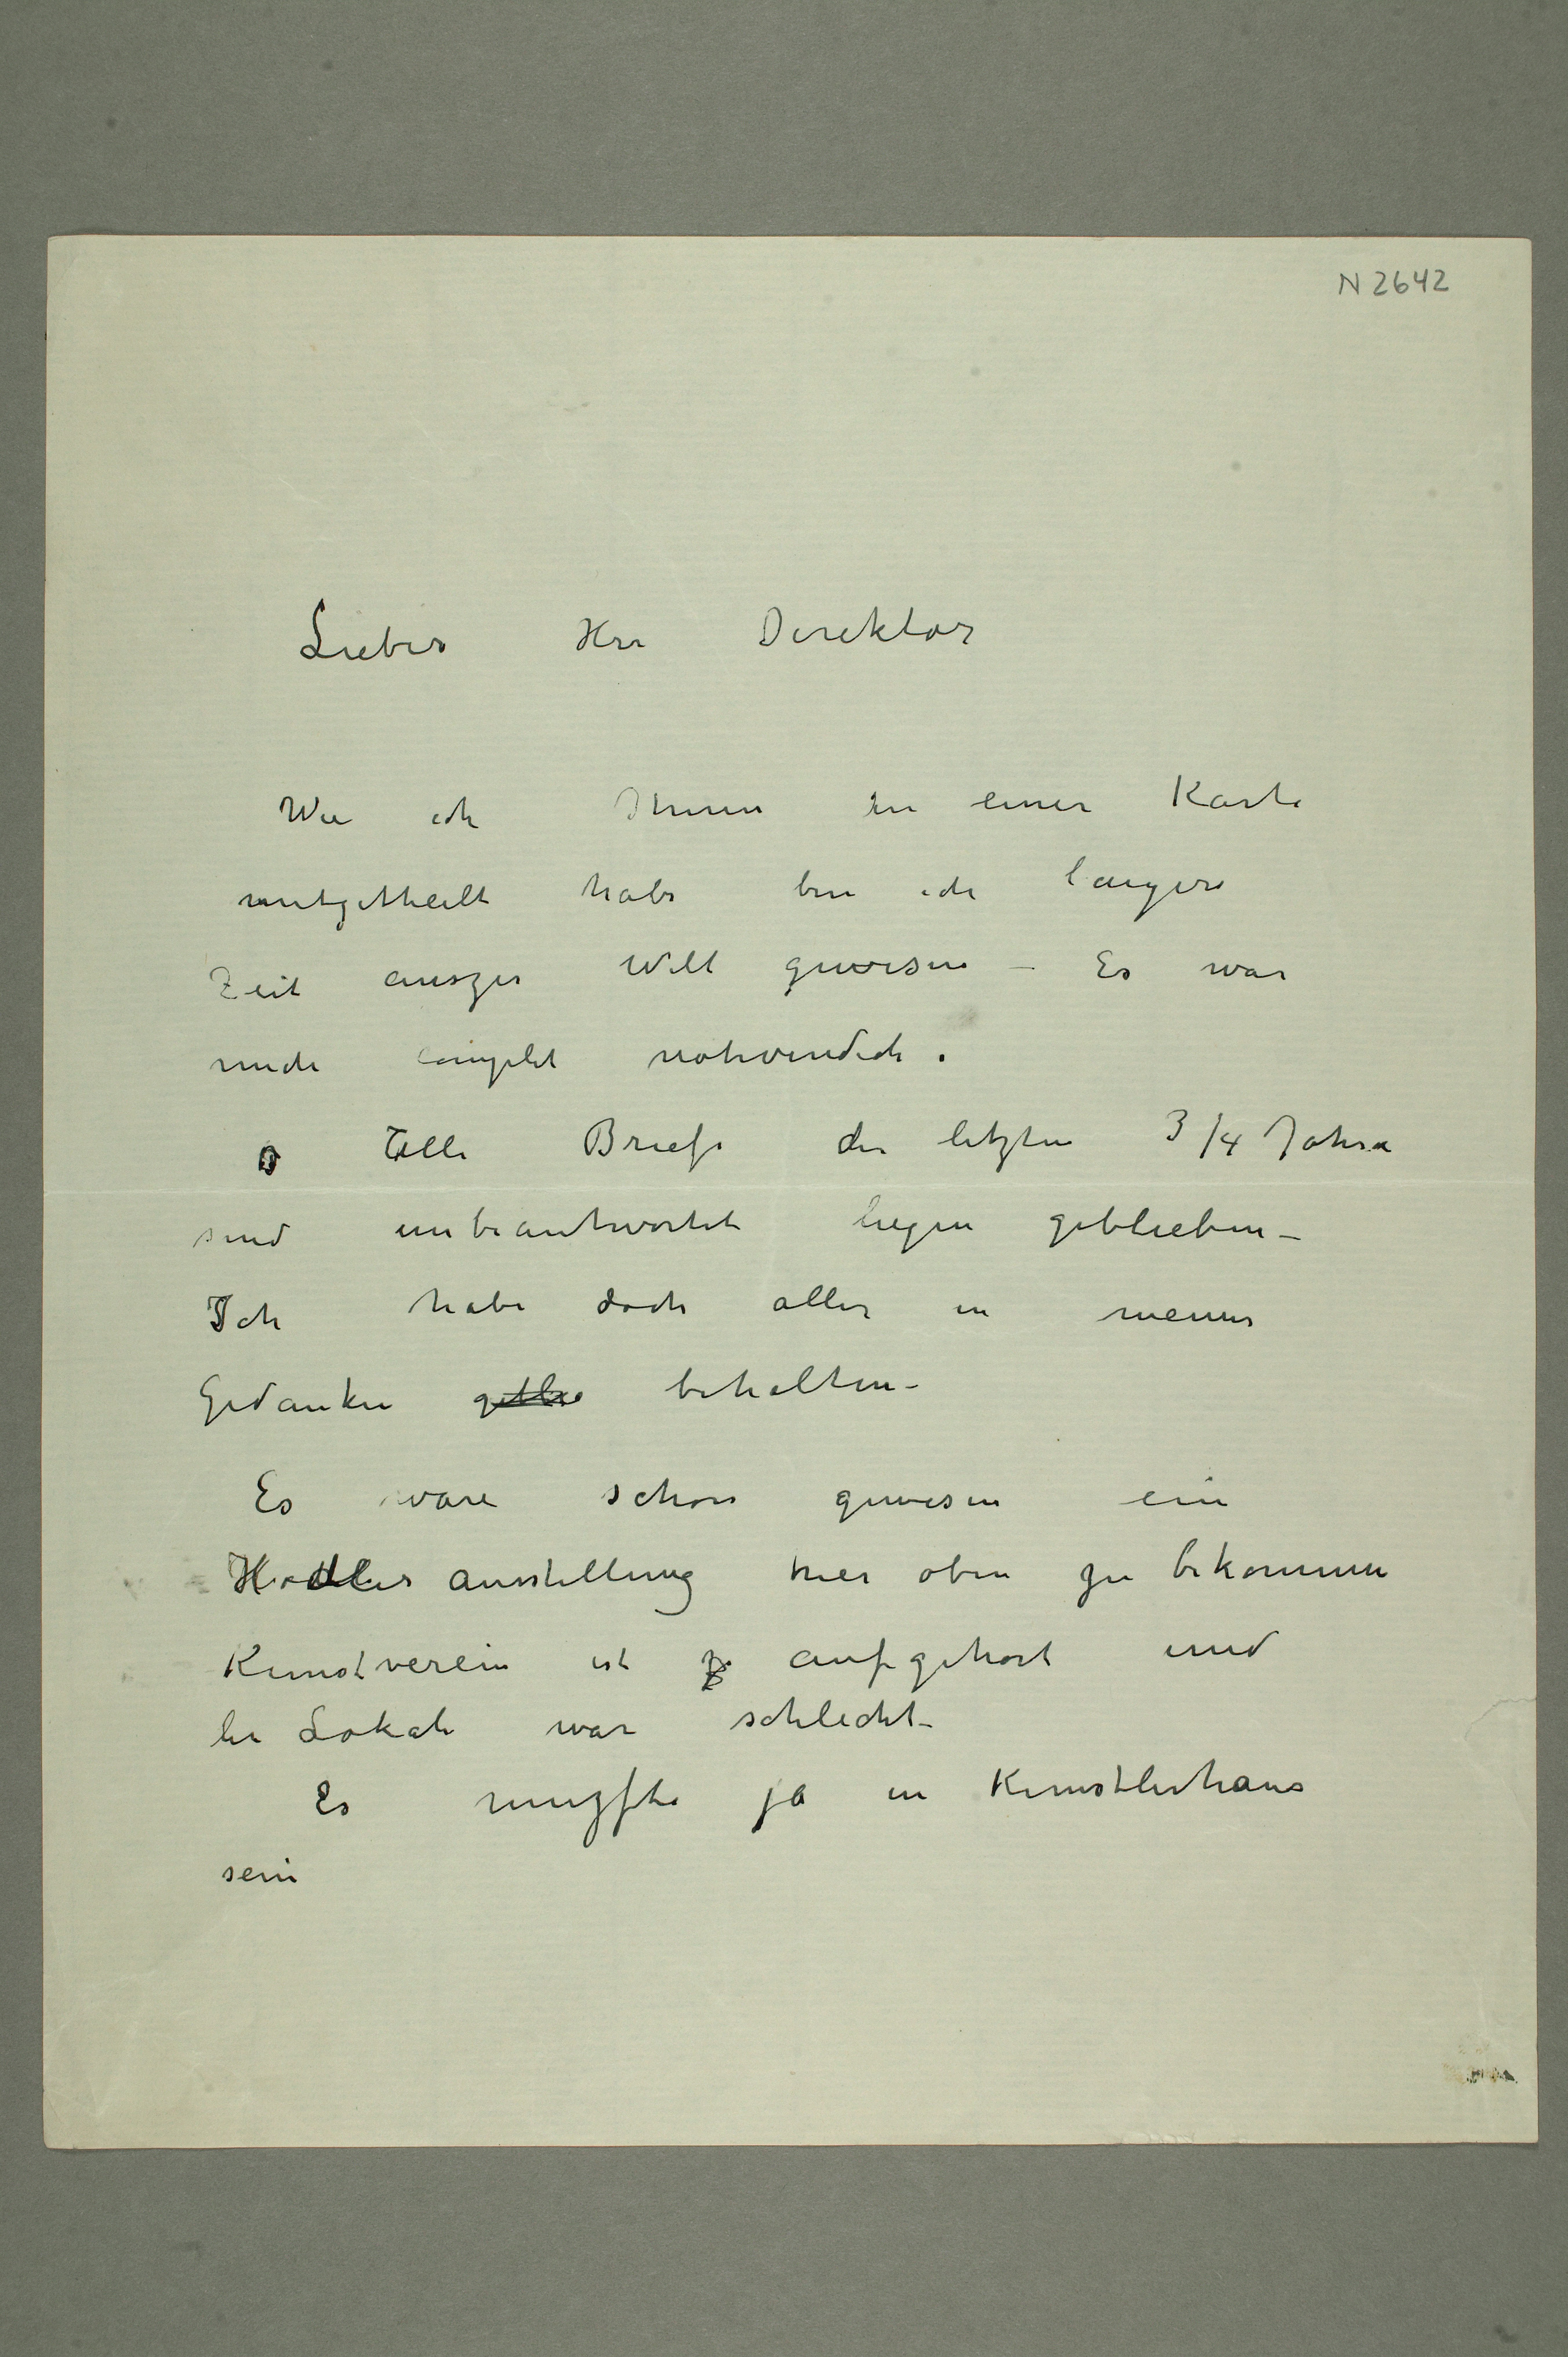 N 2642
Lieber Herr Direktor
Wie ich Ihnen in einer Karte
mitgetheilt habe bin ich langere
Zeit auszer Welt gewesen – Es war
mich complet nothvendich.
Alle Briefe der letzten 3/4 Jahre
sind unbeantwortet liegen geblieben –
Ich habe doch alles in meiner
Gedanken behalten –
Es ware schon gewesen ein
Hodlerausstellung hier oben zu bekommen
Kunstverein ist aufgehort und
der Lokale war schlecht –
Es muszfte ja in Kunstlerhaus
sein